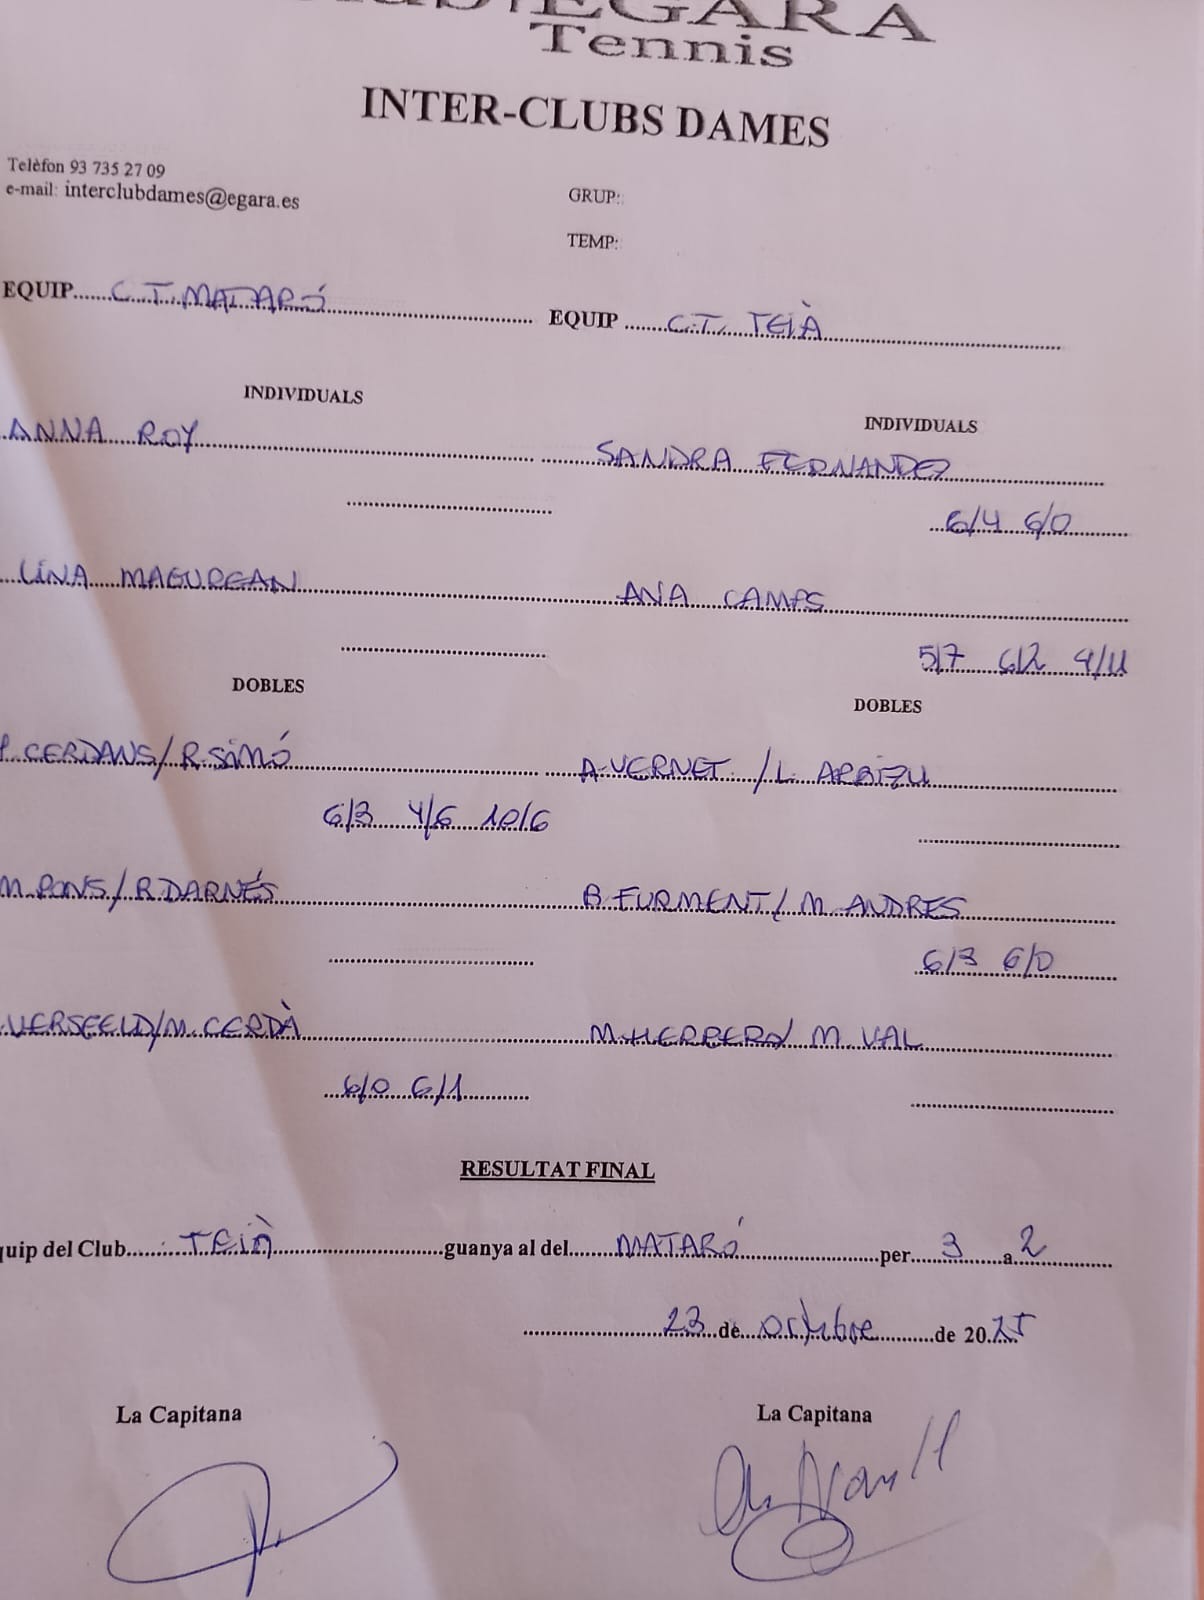 EGARA
Tennis
INTER-CLUBS DAMES
Telèfon 93 735 27 09
e-mail: interclubdames@egara.es
GRUP:
TEMP:
EQUIP C.T. MATARÓ EQUIP C.T. TEIÀ
INDIVIDUALS INDIVIDUALS
ANNA ROY SANDRA FERNANDEZ
6/4 6/0
LINA MAGUREAN ANA CAMPS
5/7 6/2 9/11
DOBLES DOBLES
P. CERDANS/R. SIMÓ A. VERNET / L. ARBIZU
6/3 4/6 10/6
M. PONS / R. DARNÉS B. FURMENT / M. ANDRES
6/3 6/0
VERSFELD/M. CERDÀ M. HERRERO/ M. VAL
6/0 6/1
RESULTAT FINAL
quip del Club TEIÀ guanya al del MATARÓ per 3 a 2
23 de octubre de 2025
La Capitana La Capitana